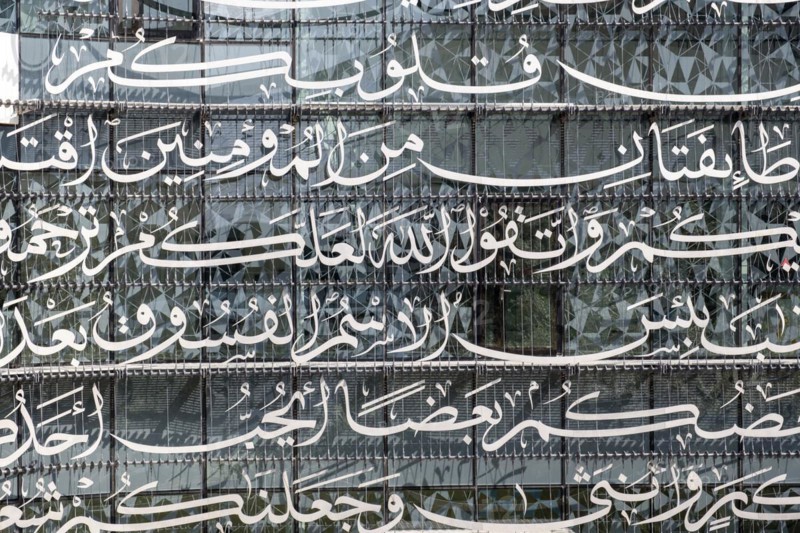 قلوبكم
طائفتان من المؤمنين اقت
يكم واتقوا الله لعلكم ترحمو
بئس الاسم الفسوق بعد
بعضكم بعضا أيحب أحدك
ذكر وأنثى وجعلنكم شعو